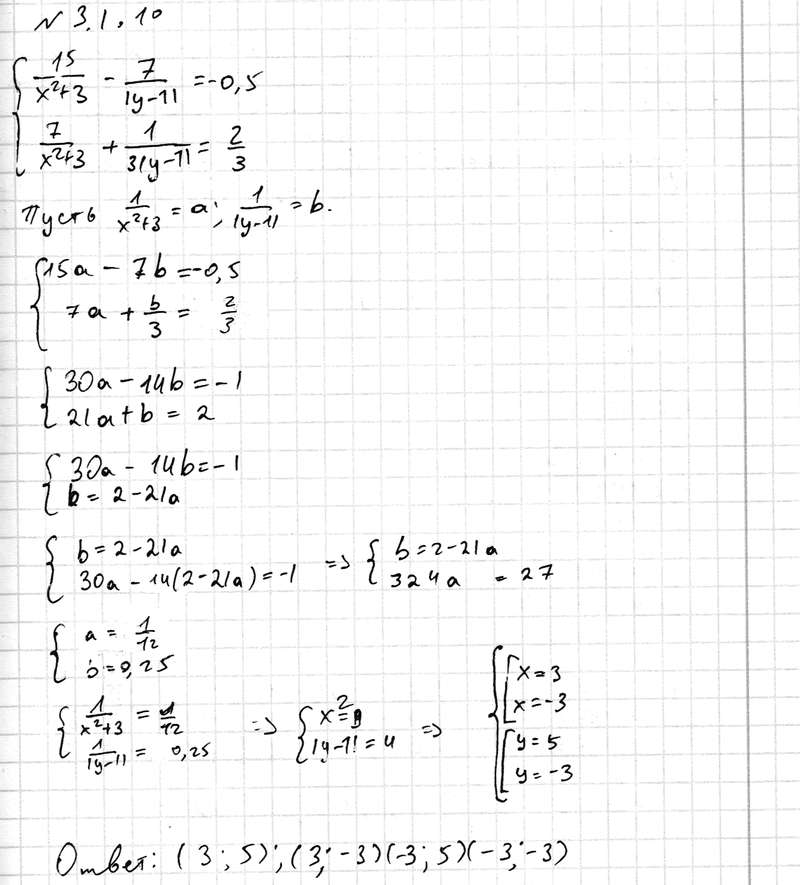 N 3.1.10
{ 15/(x²+3) - 7/|y-1| = -0,5
7/(x²+3) + 1/(3|y-1|) = 2/3
Пусть 1/(x²+3) = a; 1/|y-1| = b.
{ 15a - 7b = -0,5
7a + b/3 = 2/3
{ 30a - 14b = -1
21a + b = 2
{ 30a - 14b = -1
b = 2 - 21a
{ b = 2 - 21a
30a - 14(2 - 21a) = -1 => { b = 2 - 21a
324a = 27
{ a = 1/12
b = 0,25
{ 1/(x²+3) = 1/12
1/|y-1| = 0,25 => { x² = 9
|y-1| = 4 => { [ x = 3
x = -3
[ y = 5
y = -3
Ответ: (3; 5); (3; -3)(-3; 5)(-3; -3)